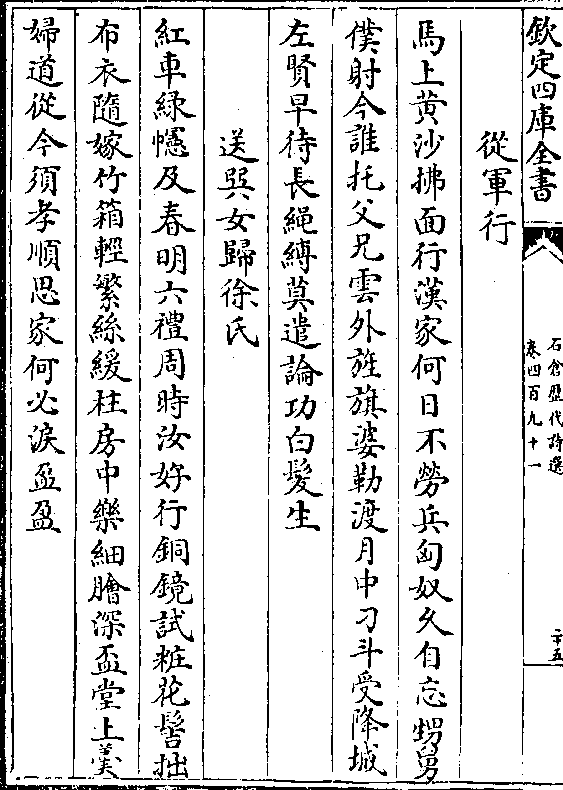 欽定四庫全書
石倉歷代詩選
卷四百九十一
二十五
從軍行
馬上黄沙拂面行漢家何日不勞兵匈奴久自忘甥舅
僕射今誰托父兄雲外旌旗婆勒渡月中刁斗受降城
左賢早待長繩縛莫遣論功白髮生
送巽女歸徐氏
紅車緑幰及春明六禮周時汝好行銅鏡試粧花髻拙
布衣隨嫁竹箱輕繁絲緩柱房中樂細膾深盃堂上羮
婦道從今須孝順思家何必淚盈盈